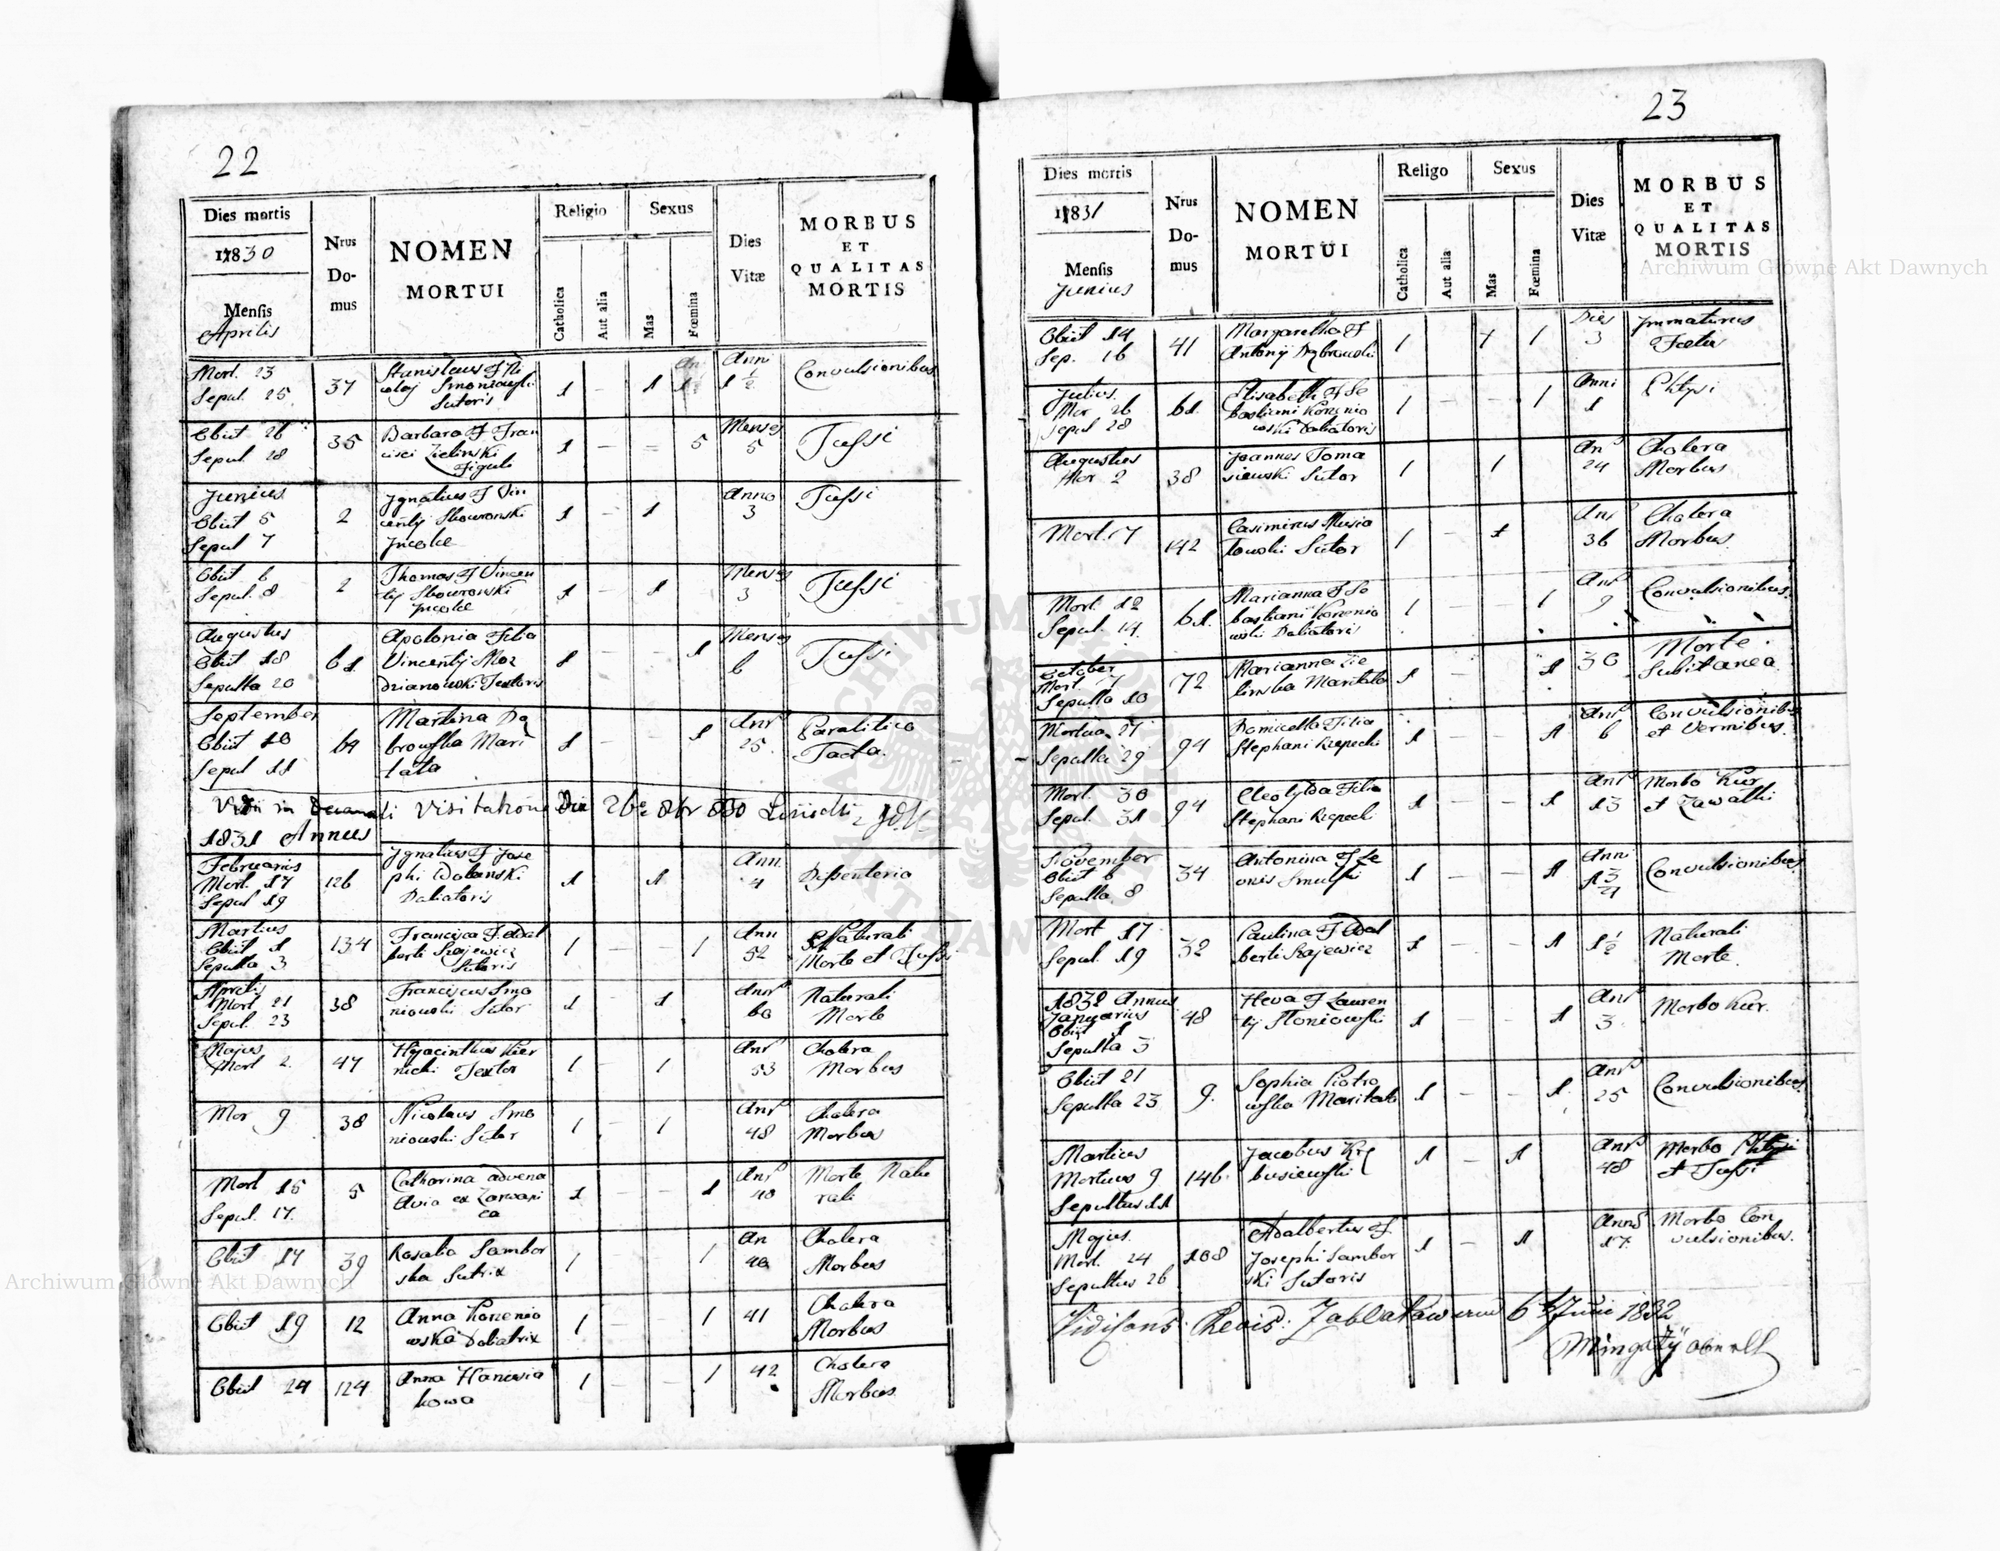 22
Dies mortis
1830
Mensis
Aprilis
Nrus
Do-
mus
NOMEN
MORTUI
Religio
Catholica
Aut alia
Sexus
Mas
Fœmina
Dies
Vitæ
MORBUS
ET
QUALITAS
MORTIS
Mort. 23
Sepul. 25
37
Stanislaus F
Sutoris
1 – 1
Anni
1 ½
Convulsionibus
Obiit 26
Sepul. 28
35
Barbara F Fran
cisci Zielinski
Figuli
1 – = 5
Menses
5
Tussi
Junius
Obiit 5
Sepul 7
2
Ignatius F Vin
centy
Incolae
1 – 1
Anno
3
Tussi
Obiit 6
Sepul. 8
2
Thomas F Vincen
ty
Incolae
1 – 1
Menses
3
Tussi
Augustus
Obiit 18
Sepulta 20
61
Apolonia Filia
Vincenty Moz
dzianowski Textoris
1 – – 1
Menses
6
Tussi
September
Obiit 10
Sepul 11
64
Martina Dą
browska Mari
tata
1 – – 1
Anr
25
Paralitico
Tacta.
Vidi in visitatione Die
1831 Annus
Februarius
Mort. 17
Sepul 19
126
Ignatius F Jose
phi Dolanski
Doliatoris
1 1
Ann.
4
Dyssenteria
Martius
Obiit 1
Sepulta 3
134
Francisca F Adal
berti Szajewicz
Sutoris
1 – – 1
Ann
52
Naturali
Morte et Tussi
Aprilis
Mort 21
Sepul. 23
38
Franciscus Smo
niowski Sutor
1 – 1
Anr
60
Naturali
Morte
Majus
Mort 2.
47
Hyacinthus Kier
nicki Textor
1 1
Anr
53
Cholera
Morbus
Mor 9
38
Nicolaus Smo
niowski Sutor
1 – 1
Anr
48
Cholera
Morbus
Mort 15
Sepul. 17.
5
Catharina advena
Avia ex Zarwani
ca
1 – – 1
Anr
40
Morte Natu
rali
Obiit 17
39
Rosalia Sambor
ska Sutrix
1 1
An
40
Cholera
Morbus
Obiit 19
12
Anna Korzenio
wska Doliatrix
1 – – 1
41
Cholera
Morbus
Obiit 24
124
Anna
kowa
1 – – 1
42
Cholera
Morbus
23
Dies mortis
1831
Mensis
Junius
Nrus
Do-
mus
NOMEN
MORTUI
Religo
Catholica
Aut alia
Sexus
Mas
Fœmina
Dies
Vitæ
MORBUS
ET
QUALITAS
MORTIS
Obiit 14
Sep. 16
41
Margaretha F
Antonij Dąbrowski
1 1
Dies
3
Immaturus
Foetus
Julius
Mor 26
Sepul 28
61
Elisabeth F Se
bastiani Korzenio
wski Doliatoris
1 – – 1
Anni
1
Phtysi
Augustus
Mor 2
38
Joannes Toma
siewski Sutor
1 1
An
24
Cholera
Morbus
Mort. 7
142
Casimirus Musia
towski Sutor
1 – 1
Anr
36
Cholera
Morbus
Mort. 12
Sepul. 14.
61
Marianna F Se
bastiani Korzenio
wski Doliatoris
1 – 1
Anr
9
Convulsionibus.
October
Mort. 7
Sepulta 10
72
Marianna Zie
linska Maritata
1 – – 1
30
Morte
Subitanea
Mortua 27
Sepulta 29
94
Domicella Filia
Stephani Rzepecki
1 – 1
Anr
6
Convulsionibus
et Vermibus.
Mort. 30
Sepul. 31
94
Cleotylda Filia
Stephani Rzepecki
1 – – 1
Anr
13
Morbo Kur
et Zawałki
November
Obiit 6
Sepulta 8
34
Antonina F Le
onis Smulski
1 – – 1
Anni
1 3/4
Convulsionibus
Mort 17
Sepul. 19
32
Paulina F Adal
berti Szajewicz
1 – – 1
1 ½
Naturali
Morte.
1832 Annus
Januarius
Obiit 1
Sepulta 3
48
Heva F Lauren
tij Stoniowski
1 – – 1
Anr
3.
Morbo Kur.
Obiit 21
Sepulta 23
9.
Sophia Piotro
wska Maritata
1 – – 1
Anr
25
Convulsionibus
Martius
Mortuus 9
Sepultus 11
146.
Jacobus
busiewski
1 – 1
Anr
48
Morbo
et Tussi
Majus.
Mort. 24
Sepultus 26
108
Adalbertus F
Josephi Sambor
ski Sutoris
1 – 1
Anns
17.
Morbo Con
vulsionibus.
6 Junii 1832
Archiwum Główne Akt Dawnych
Archiwum Główne Akt Dawnych
ARCHIWUM GŁÓWNE AKT DAWNYCH